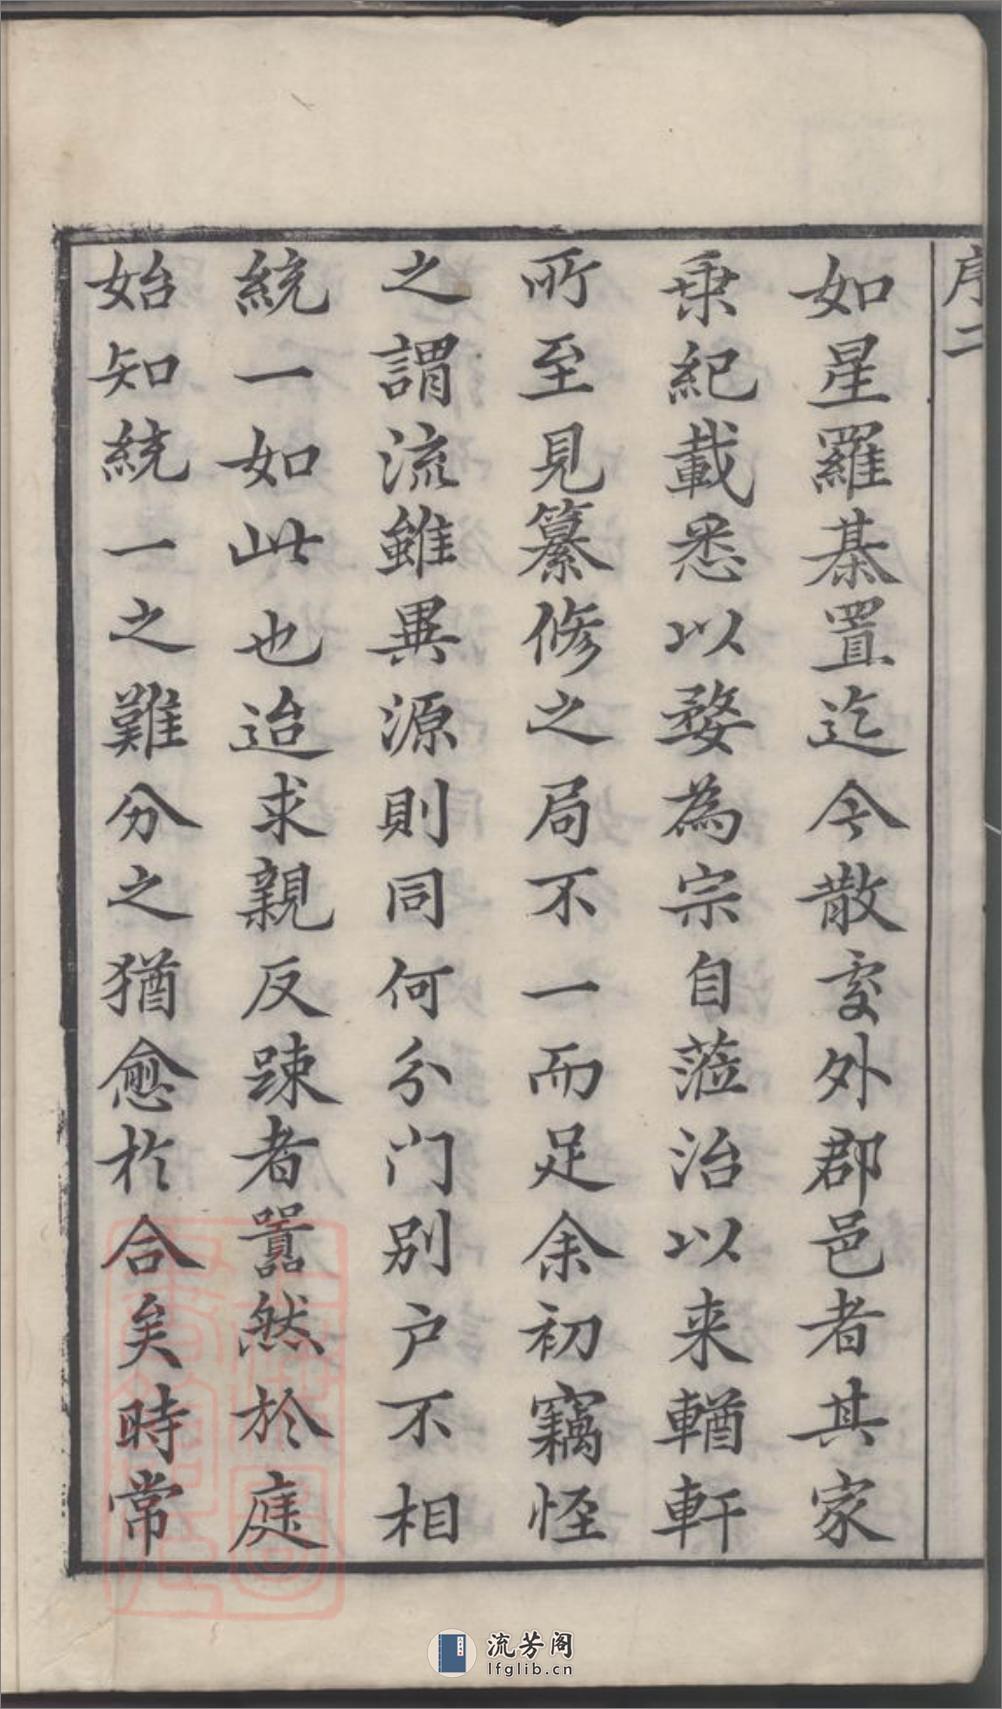 序二
如星羅棊置迄今散䖏外郡邑者其家
乗紀載悉以婺為宗自蒞治以来輶軒
所至見纂修之局不一而足余初竊怪
之謂流雖異源則同何分门别户不相
統一如此也迨求親反踈者嚣然於庭
始知統一之難分之猶愈於合矣時常
流芳阁
lfglib.cn